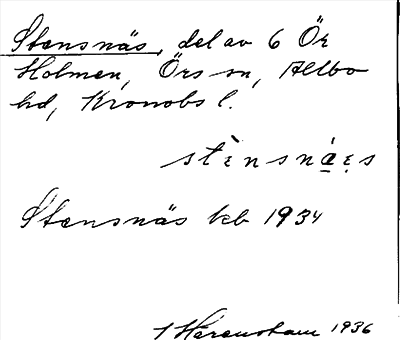 Stensnäs, del av 6 Ör
Holmen, Örs sn, Allbo
hd, Kronobs l.
stènsnàes
Stensnäs kb 1934
1936